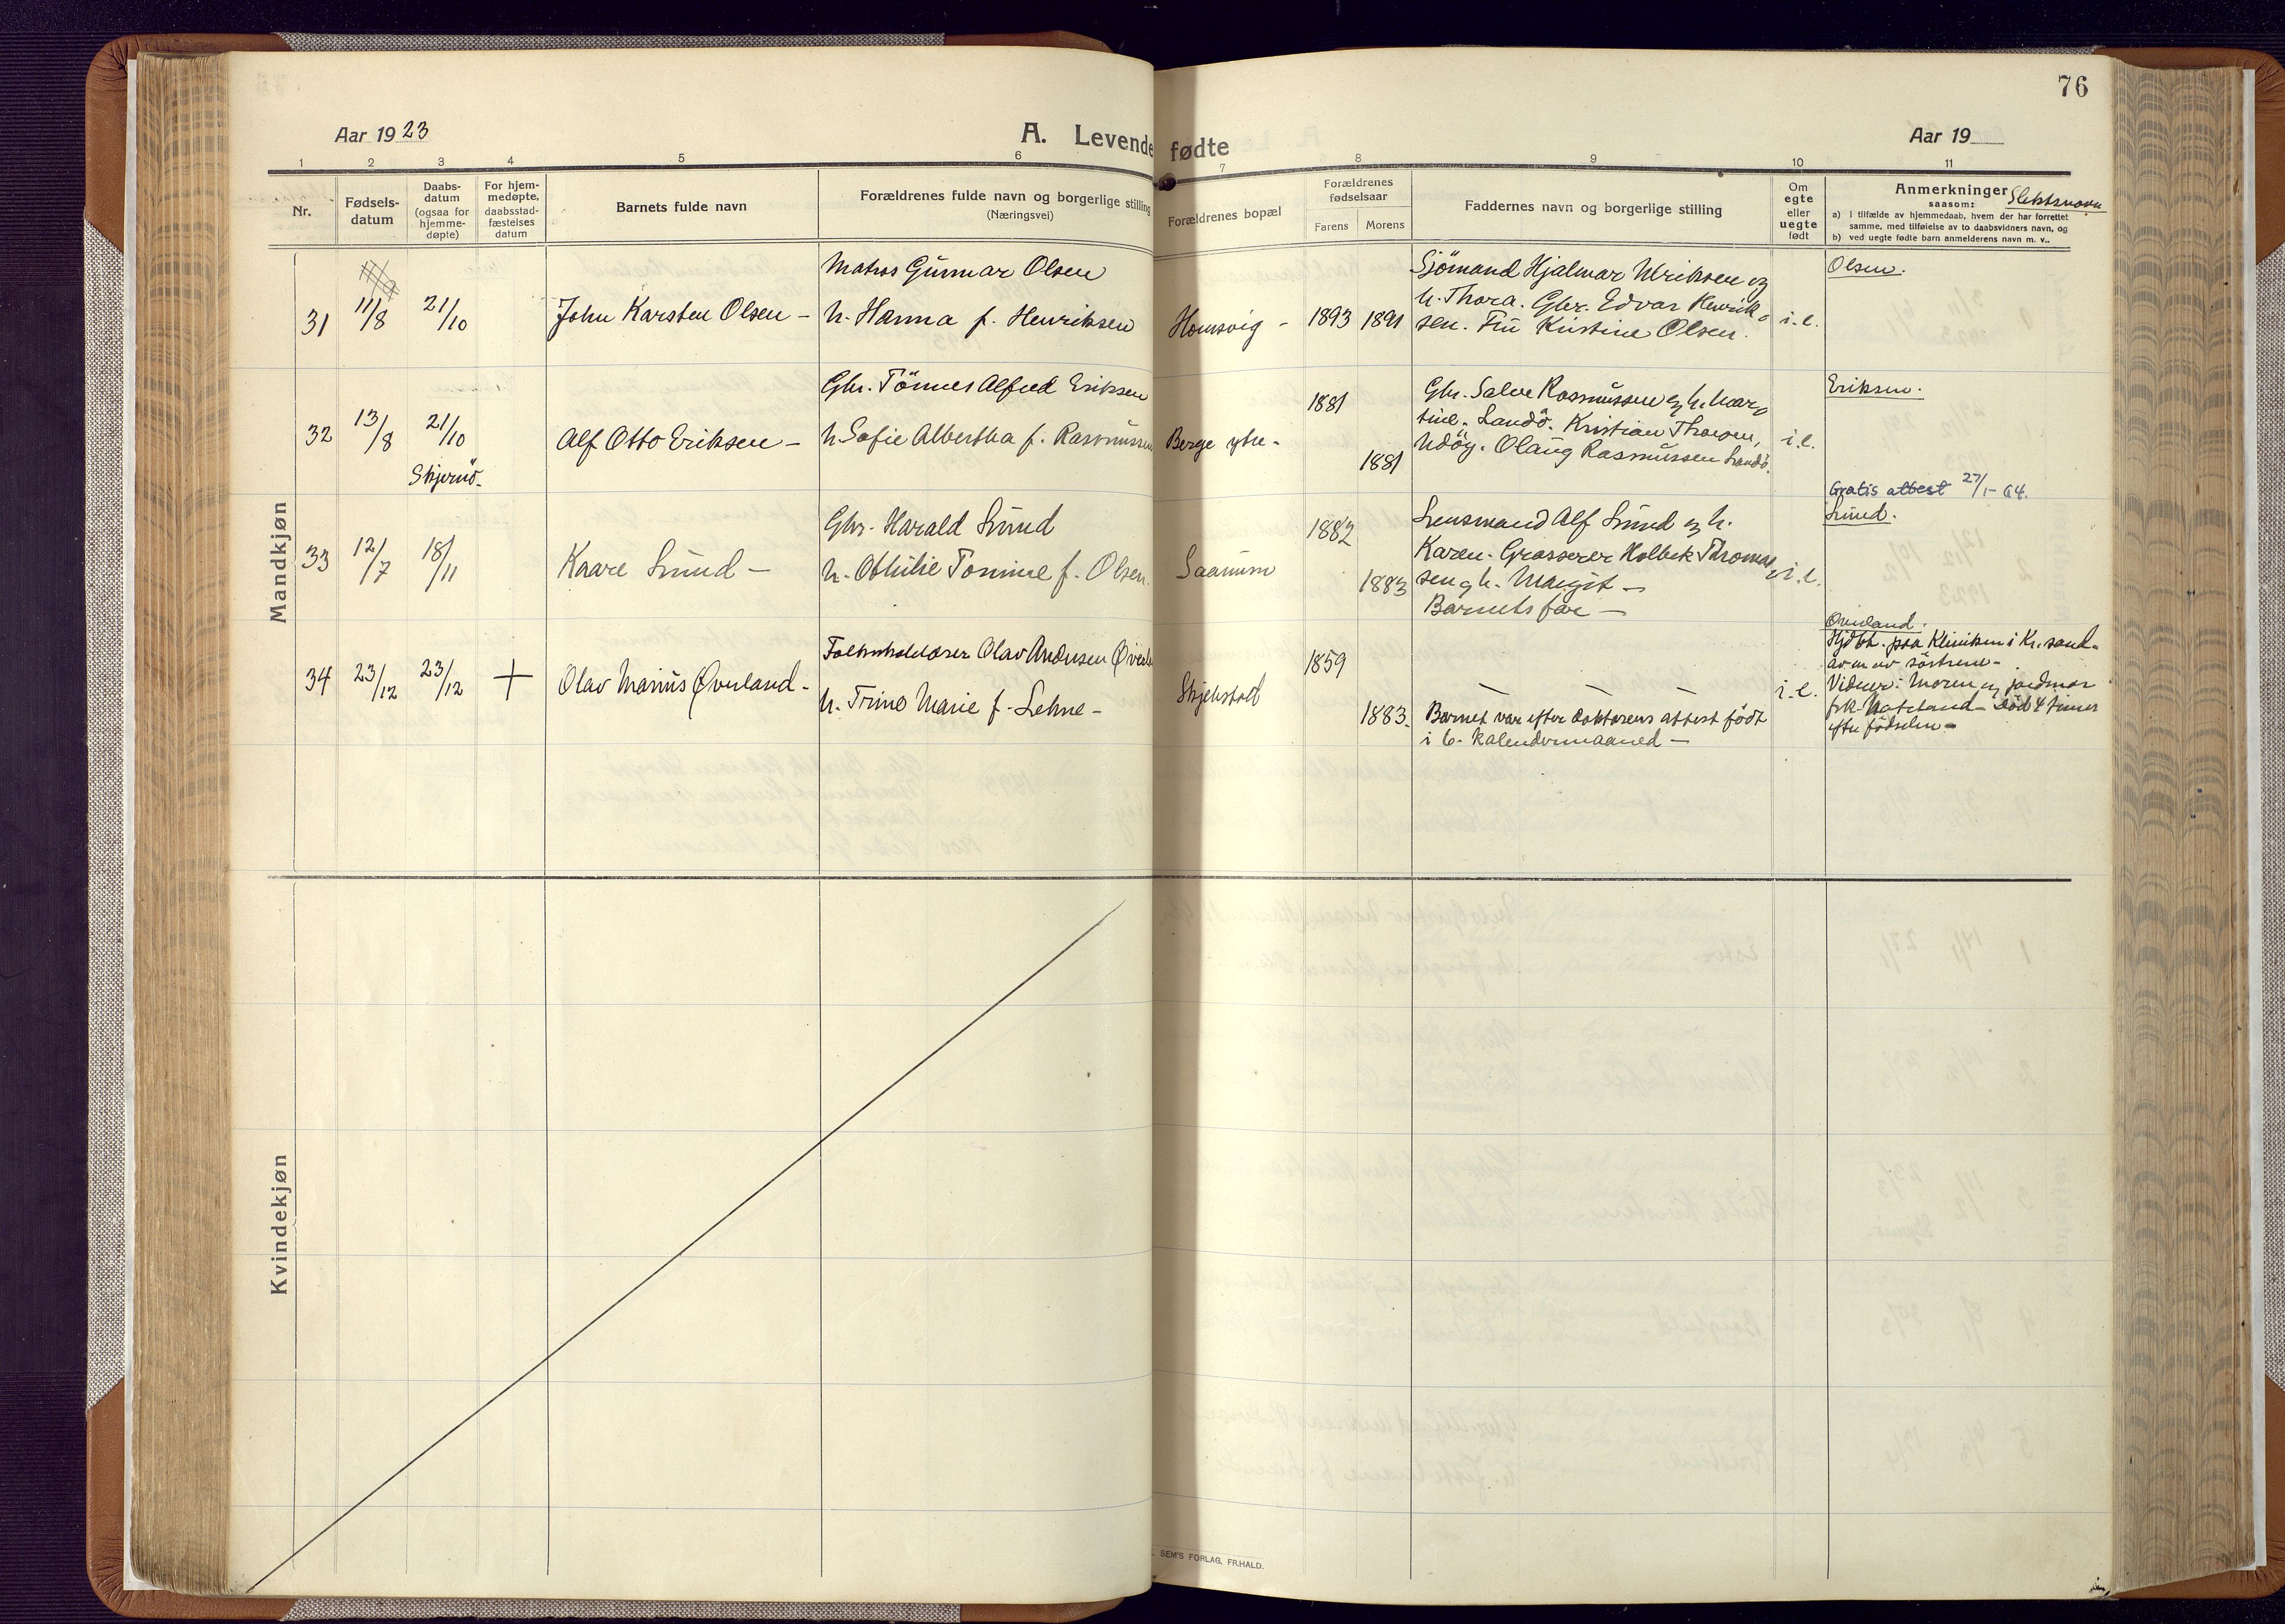 76
Aar 1923
A. Levende fødte
Aar 19
1 2 3 4 5 6 7 8 9 10 11
Nr.
Fødsels-
datum
Daabs-
datum
(ogsaa for
hjemme-
døpte)
For hjem-
medøpte,
daabsstad-
fæstelses
datum
Barnets fulde navn
Forældrenes fulde navn og borgerlige stilling
(Næringsvei)
Forældrenes bopæl
Forældrenes
fødselsaar
Farens Morens
Faddernes navn og borgerlige stilling
Om
egte
eller
uegte
født
Anmerkninger Slektsnavn
saasom:
a) i tilfælde av hjemmedaab, hvem der har forrettet
samme, med tilføielse av to daabsvidners navn, og
b) ved uegte fødte barn anmelderens navn m. v..
Mandkjøn
31 11/8 21/10
John Karsten Olsen -
Matros Gunnar Olsen
h. Hanna f. Henriksen
Homsvig -
1893 1891
Sjömand Hjalmar Ulriksen og
h. Thora. Gbr. Edvar Henrik-
sen. Fru Kristine Olsen.
i.e.
Olsen.
32 13/8 21/10
Skjernö.
Alf Otto Eriksen -
Gbr. Tönnes Alfred Eriksen
h. Sofie Albertha f. Rasmussen
Berge ytre -
1881
1881
Gbr. Salve Rasmussen og h. Mar-
tine. Landö. Kristian
Udöy. Olaug Rasmussen Landö.
i.e.
Eriksen.
33 12/7 18/11
Kaare Lund -
Gbr. Harald Lund
h. Othilie Tomine f. Olsen.
Saanum
1882
1883
Lensmand Alf Lund og h.
Karen. Grosserer Holbek Thomas-
sen og h. Margit -
Barnets far -
i.e.
Gratis attest 27/1 - 64.
Lund.
34 23/12 23/12 +
Olav Marius Øverland -
Olav Andersen
h. Trine Marie f. Lehne -
Skjebstad
1859
1883.
Barnet var efter doktorens attest født
i 6. kalendermaaned -
i.e.
Øverland.
Hjdbt. paa Kliniken i Kr.sand
av en av söstrene -
Vidner: Moren og jordmor
frk. - död 4 timer
efter fødselen -
Kvindekjøn
SEM'S FORLAG, FR.HALD.